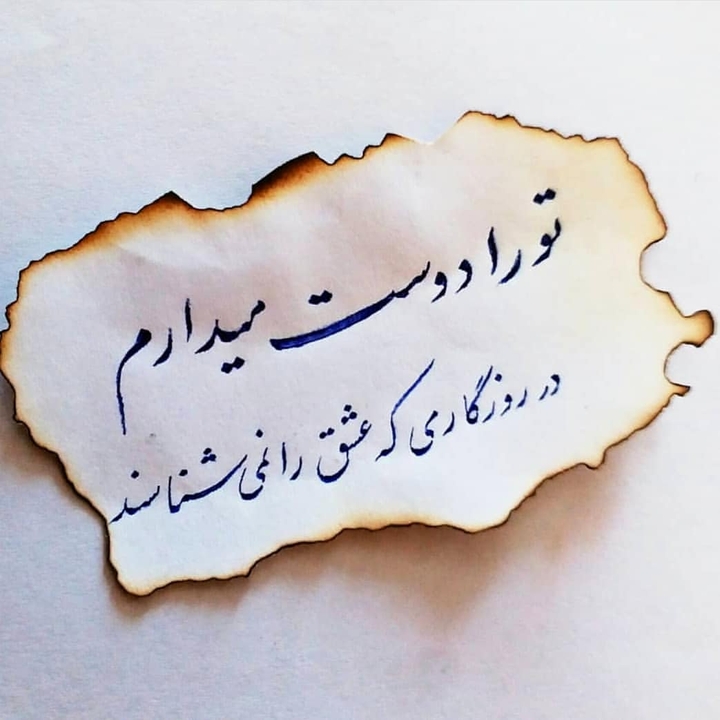 تو را دوست میدارم
در روزگاری که عشق را نمی شناسند